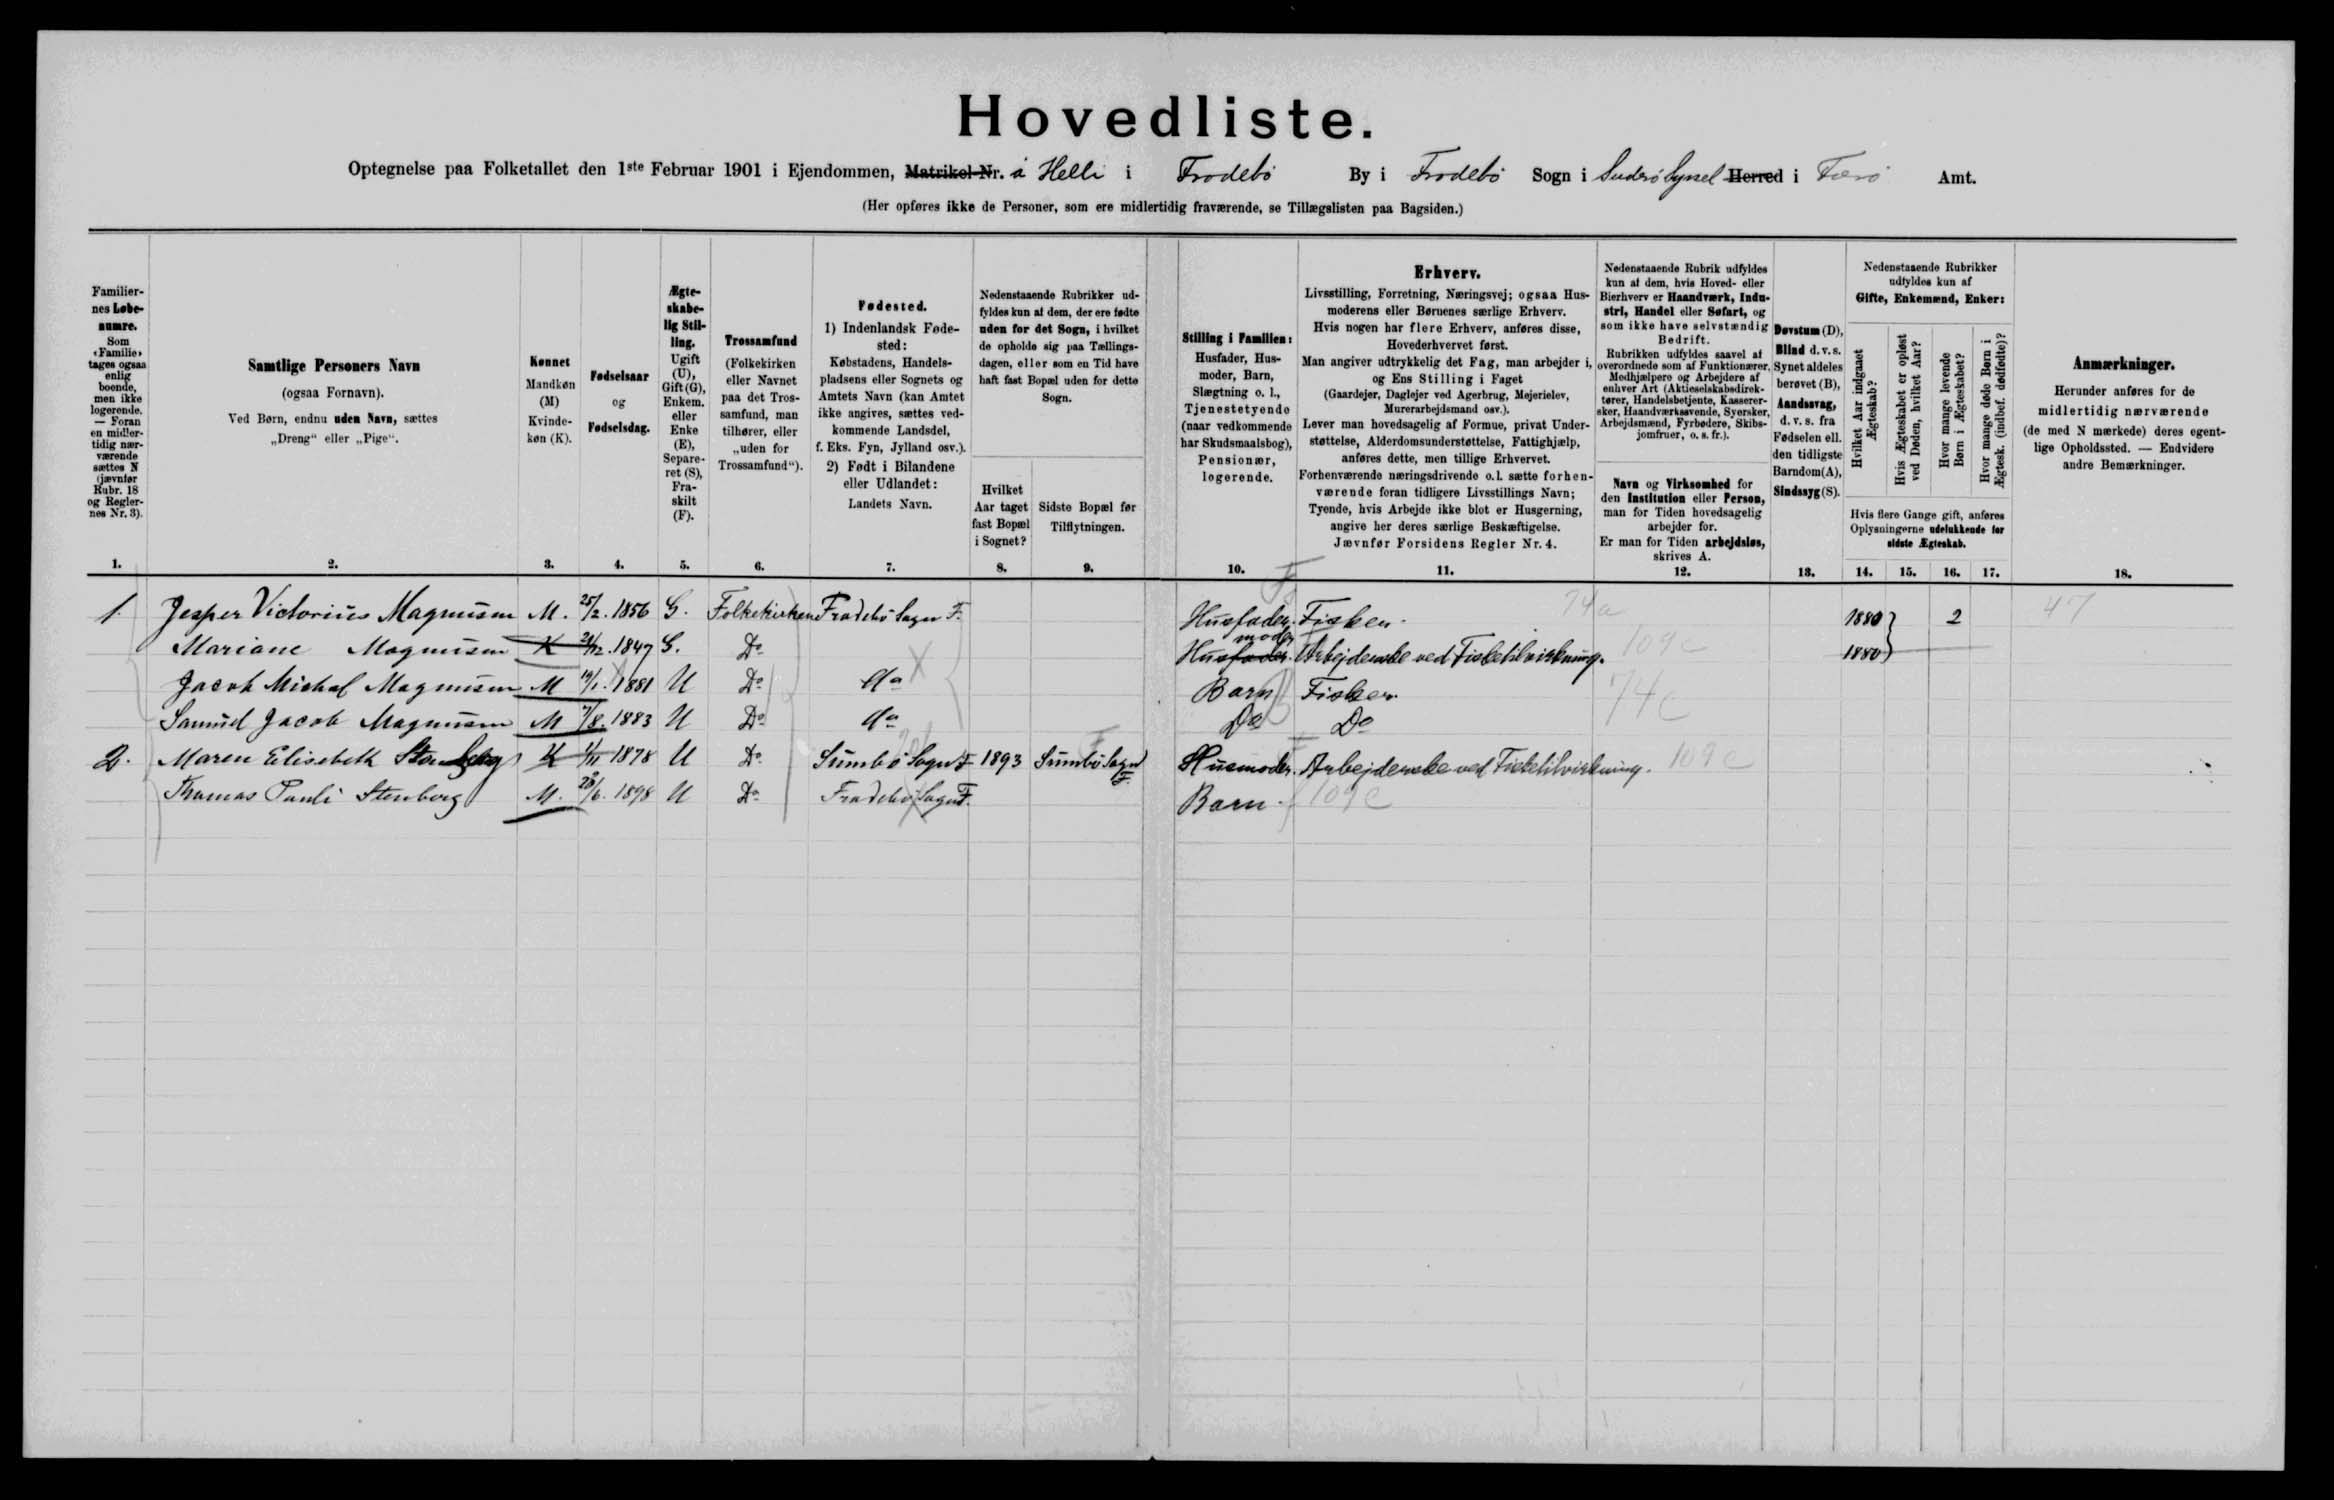 Hovedliste.
Optegnelse paa Folketallet den 1ste Februar 1901 i Ejendommen, Matrikel-Nr. á Helli i Frodebö By i Frodebö Sogn i Suderö Syssel Herred i Færö Amt.
(Her opføres ikke de Personer, som ere midlertidig fraværende, se Tillægslisten paa Bagsiden.)
Familier-
nes Løbe-
numre.
Som
«Familie»
tages ogsaa
enlig
boende,
men ikke
logerende.
— Foran
en midler-
tidig nær-
værende
sættes N
(jævnfør
Rubr. 18
og Regler-
nes Nr. 3).
Samtlige Personers Navn
(ogsaa Fornavn).
Ved Børn, endnu uden Navn, sættes
„Dreng“ eller „Pige“.
Kønnet
Mandkøn
(M)
Kvinde-
køn (K).
Fødselsaar
og
Fødselsdag.
Ægte-
skabe-
lig Stil-
ling.
Ugift
(U),
Gift (G),
Enkem.
eller
Enke
(E),
Separe-
ret (S),
Fra-
skilt
(F).
Trossamfund
(Folkekirken
eller Navnet
paa det Tros-
samfund, man
tilhører, eller
„uden for
Trossamfund“).
Fødested.
1) Indenlandsk Føde-
sted:
Købstadens, Handels-
pladsens eller Sognets og
Amtets Navn (kan Amtet
ikke angives, sættes ved-
kommende Landsdel,
f. Eks. Fyn, Jylland osv.).
2) Født i Bilandene
eller Udlandet:
Landets Navn.
Nedenstaaende Rubrikker ud-
fyldes kun af dem, der ere fødte
uden for det Sogn, i hvilket
de opholde sig paa Tællings-
dagen, eller som en Tid have
haft fast Bopæl uden for dette
Sogn.
Hvilket
Aar taget
fast Bopæl
i Sognet?
Sidste Bopæl før
Tilflytningen.
Stilling i Familien:
Husfader, Hus-
moder, Barn,
Slægtning o. l.,
Tjenestetyende
(naar vedkommende
har Skudsmaalsbog),
Pensionær,
logerende.
Erhverv.
Livsstilling, Forretning, Næringsvej; ogsaa Hus-
moderens eller Børnenes særlige Erhverv.
Hvis nogen har flere Erhverv, anføres disse,
Hovederhvervet først.
Man angiver udtrykkelig det Fag, man arbejder i,
og Ens Stilling i Faget
(Gaardejer, Daglejer ved Agerbrug, Mejerielev,
Murerarbejdsmand osv.).
Lever man hovedsagelig af Formue, privat Under-
støttelse, Alderdomsunderstøttelse, Fattighjælp,
anføres dette, men tillige Erhvervet.
Forhenværende næringsdrivende o.l. sætte forhen-
værende foran tidligere Livsstillings Navn;
Tyende, hvis Arbejde ikke blot er Husgerning,
angive her deres særlige Beskæftigelse.
Jævnfør Forsidens Regler Nr. 4.
Nedenstaaende Rubrik udfyldes
kun af dem, hvis Hoved- eller
Bierhverv er Haandværk, Indu-
stri, Handel eller Søfart, og
som ikke have selvstændig
Bedrift.
Rubrikken udfyldes saavel af
overordnede som af Funktionærer,
Medhjælpere og Arbejdere af
enhver Art (Aktieselskabsdirek-
tører, Handelsbetjente, Kasserer-
sker, Haandværkssvende, Syersker,
Arbejdsmænd, Fyrbødere, Skibs-
jomfruer, o. s. fr.).
Navn og Virksomhed for
den Institution eller Person,
man for Tiden hovedsagelig
arbejder for.
Er man for Tiden arbejdsløs,
skrives A.
Døvstum (D),
Blind d. v. s.
Synet aldeles
berøvet (B),
Aandssvag,
d. v. s. fra
Fødselen ell.
den tidligste
Barndom (A),
Sindssyg (S).
Nedenstaaende Rubrikker
udfyldes kun af
Gifte, Enkemænd, Enker:
Hvilket Aar indgaaet
Ægteskab?
Hvis Ægteskabet er opløst
ved Døden, hvilket Aar?
Hvor mange levende
Børn i Ægteskabet?
Hvor mange døde Børn i
Ægtesk. (indbef. dødfødte)?
Hvis flere Gange gift, anføres
Oplysningerne udelukkende for
sidste Ægteskab.
Anmærkninger.
Herunder anføres for de
midlertidig nærværende
(de med N mærkede) deres egent-
lige Opholdssted. — Endvidere
andre Bemærkninger.
1. 2. 3. 4. 5. 6. 7. 8. 9. 10. 11. 12. 13. 14. 15. 16. 17. 18.
1. Jesper Victorius Magnusen M. 25/2. 1856 G. Folkekirken Frodebö Sogn F. Husfader. Fisker. 74a 1880 2 47
Mariane Magnusen K 21/12. 1847 G. Do Husfader. moder Arbejderske ved Fisketilvirkning. 109c 1880
Jacob Michal Magnusen M 19/1. 1881 U Do do Barn Fisker. 74c
Samuel Jacob Magnusen M 7/8. 1883 U Do do Do Do
2. Maren Elisebeth Stenberg K 1/11 1878 U Do Sumbö Sogn F 1893 Sumbö Sogn F. Husmoder. Arbejderske ved Fisketilvirkning. 109c
Thomas Pauli Stenberg M. 28/6. 1898 U Do Frodebö Sogn F. Barn. 109c